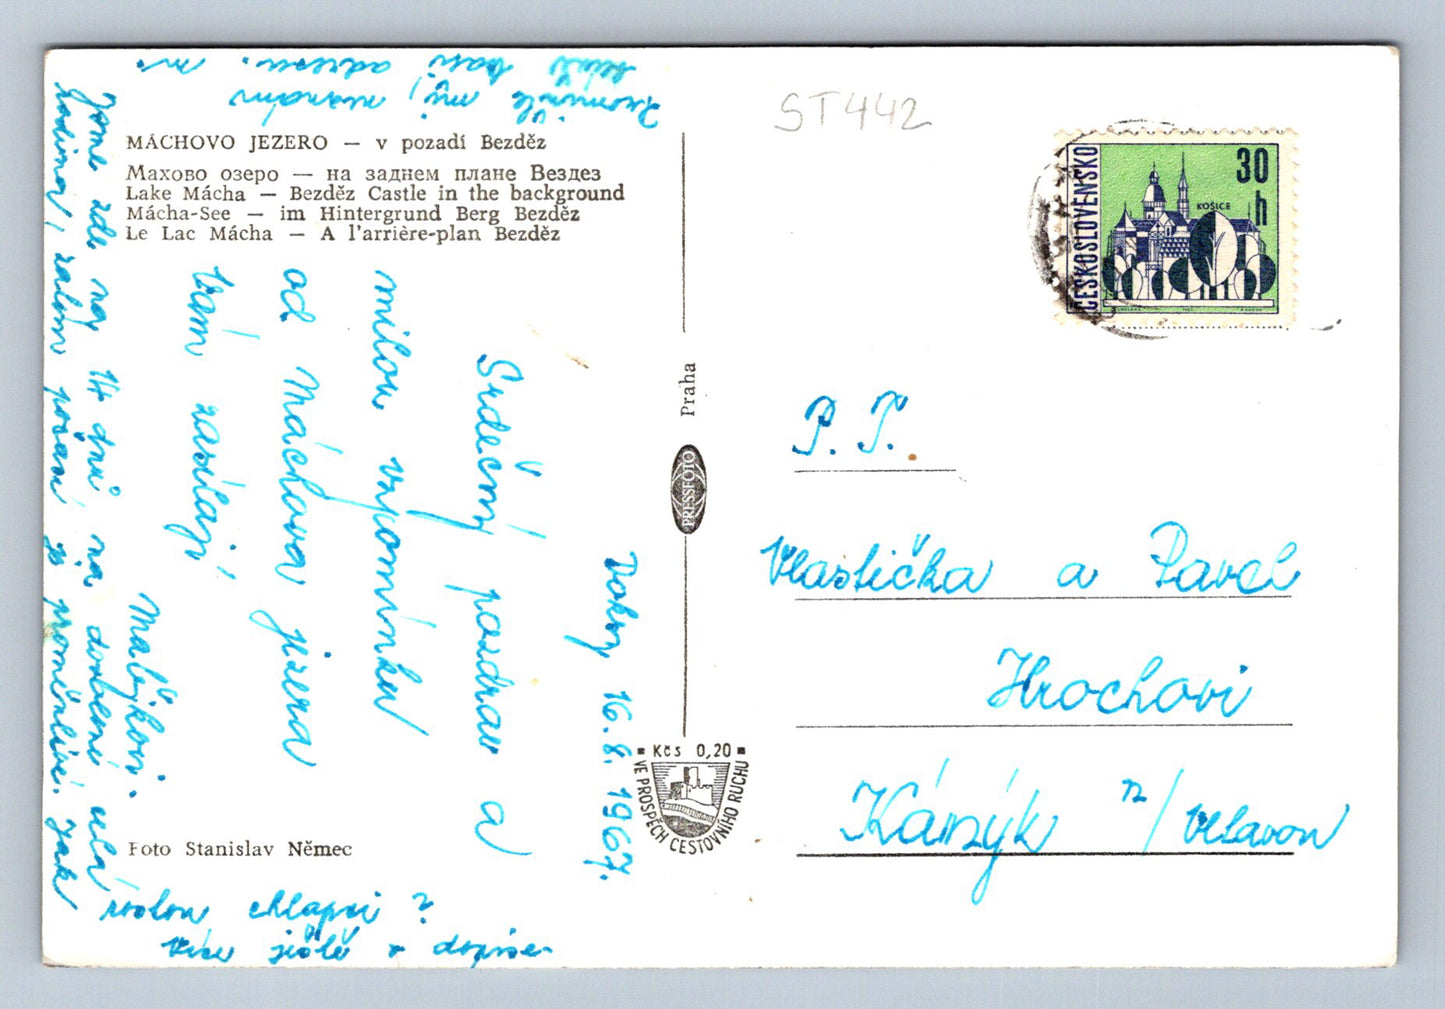 MÁCHOVO JEZERO — v pozadí Bezděz
Махово озеро — на заднем плане Вездез
Lake Mácha — Bezděz Castle in the background
Mácha-See — im Hintergrund Berg Bezděz
Le Lac Mácha — A l'arrière-plan Bezděz
Foto Stanislav Němec
Doksy 16.8.1967.
Srdečný pozdrav a
milou vzpomínku
od Máchova jezera
Vám zasílají
Malíkovi.
Jsme zde na 14 dní na dovolené celá
rodina, zatím počasí je proměnlivé. Jak
rostou chlapci?
Více ještě v dopise
Promiňte mi, neznám
Vaši adresu.
Praha
PRESSFOTO
Kčs 0,20
VE PROSPĚCH CESTOVNÍHO RUCHU
ST442
ČESKOSLOVENSKO
30 h
KOŠICE
P. T.
Vlastička a Pavel
Hrochovi
Kamýk n/Vltavou